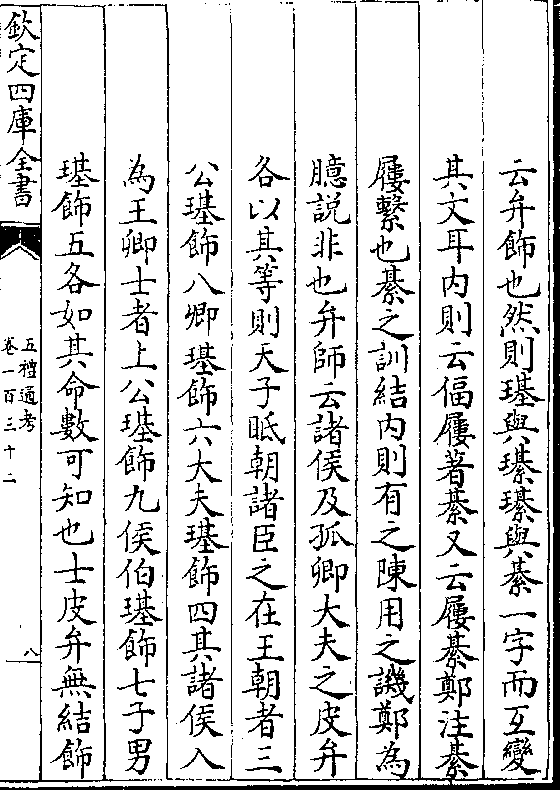 云弁飾也然則璂與瑧瑧與綦一字而互變
其文耳内則云偪屨著綦又云屨綦鄭注綦
屨繫也綦之訓結内則有之陳用之譏鄭為
臆説非也弁師云諸侯及孤卿大夫之皮弁
各以其等則天子眡朝諸臣之在王朝者三
公璂飾八卿璂飾六大夫璂飾四其諸侯入
為王卿士者上公璂飾九侯伯璂飾七子男
璂飾五各如其命數可知也士皮弁無結飾
欽定四庫全書
五禮通考
卷一百三十二
八